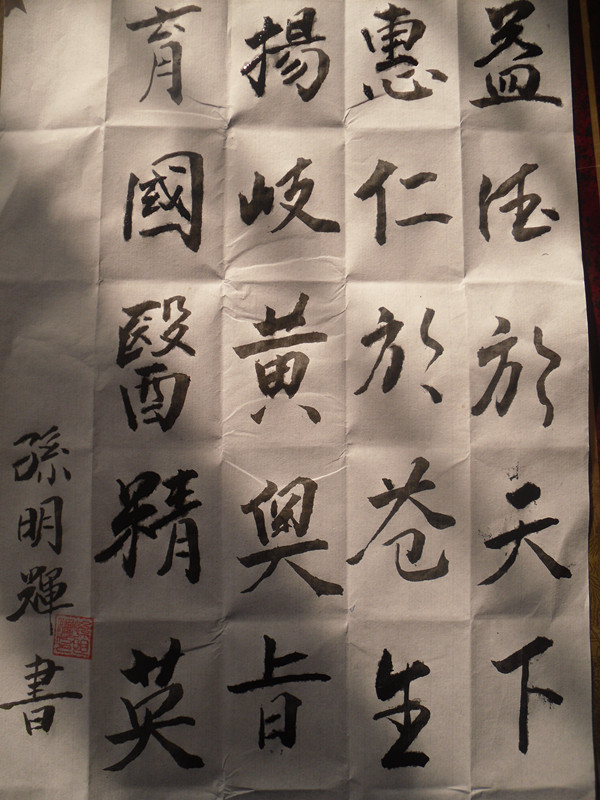 益德於天下
惠仁於苍生
揚岐黄奥旨
育國醫精英
孫明輝書